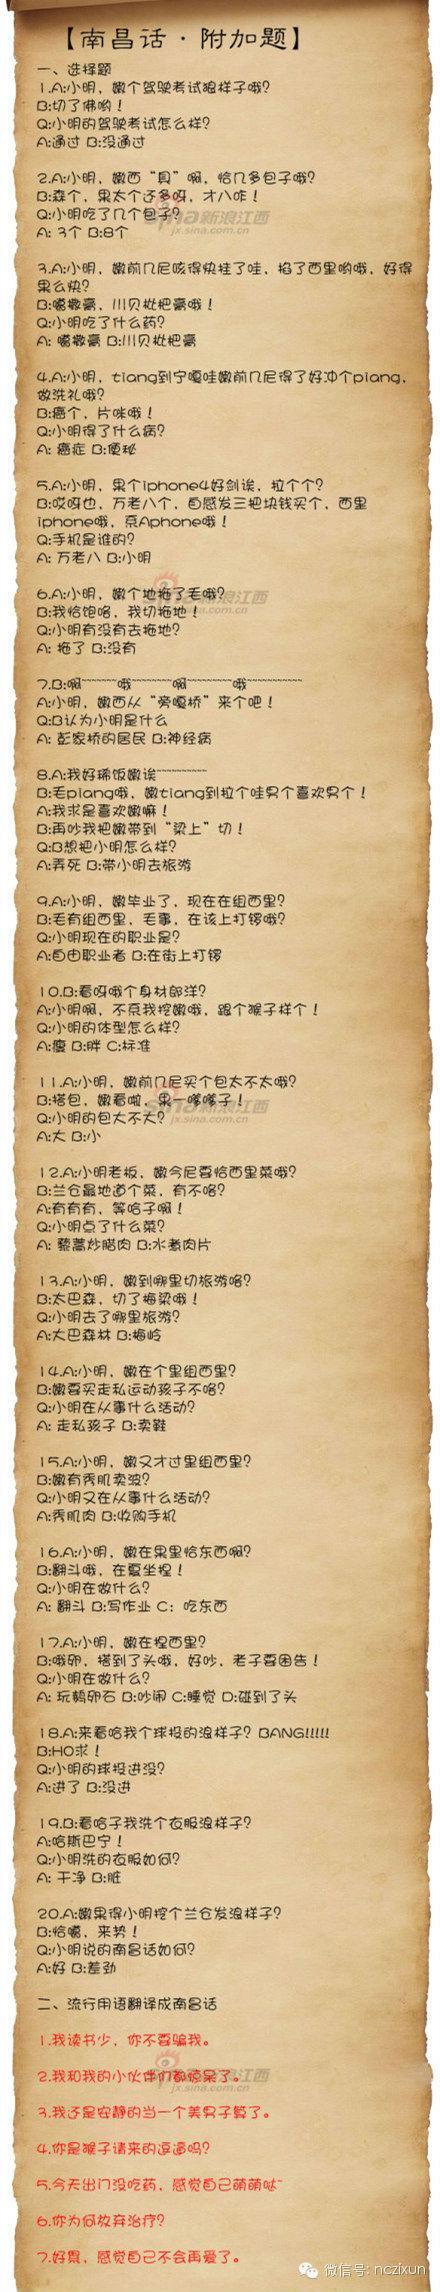 【南昌话·附加题】
一、选择题
1.A:小明，嫩个驾驶考试狼样子哦？
B:切了佛哟！
Q:小明的驾驶考试怎么样？
A:通过 B:没通过
2.A:小明，嫩西“具”啊，恰几多包子哦？
B:森个，果太个还多呀，才八咋！
Q:小明吃了几个包子？
A: 3个 B:8个
3.A:小明，嫩前几尼咳得快挂了哇，掐了西里哟哦，好得
果么快？
B:噶撒膏，川贝枇杷膏哦！
Q:小明吃了什么药？
A: 噶撒膏 B:川贝枇杷膏
4.A:小明，tiang到宁嘎哇嫩前几尼得了好冲个piang，
做洗礼哦？
B:癌个，片咪哦！
Q:小明得了什么病？
A: 癌症 B:便秘
5.A:小明，果个iphone4好剑诶，拉个个？
B:哎呀也，万老八个，自感发三把块钱买个，西里
iphone哦，京Aphone哦！
Q:手机是谁的？
A: 万老八 B:小明
6.A:小明，嫩个地拖了毛哦？
B:我恰饱咯，我切拖地！
Q:小明有没有去拖地？
A: 拖了 B:没有
7.B:啊~~~~~~哦~~~~~~~啊~~~~~~~~哦~~~~~~~~~~
A:小明，嫩西从“旁嘎桥”来个吧！
Q:B认为小明是什么
A: 彭家桥的居民 B:神经病
8.A:我好稀饭嫩诶~~~~~~~~~
B:毛piang哦，嫩tiang到拉个哇男个喜欢男个！
A:我求是喜欢嫩嘛！
B:再吵我把嫩带到“梁上”切！
Q:B想把小明怎么样？
A:弄死 B:带小明去旅游
9.A:小明，嫩毕业了，现在在组西里？
B:毛有组西里，毛事，在该上打锣哦？
Q:小明现在的职业是？
A:自由职业者 B:在街上打锣
10.B:看呀哦个身材部洋？
A:小明啊，不京我挖嫩哦，跟个猴子样个！
Q:小明的体型怎么样？
A:瘦 B:胖 C:标准
11.A:小明，嫩前几尼买个包太不太哦？
B:搭包，嫩看啦，果一嗲嗲子！
Q:小明的包大不大？
A:大 B:小
12.A:小明老板，嫩今尼要恰西里菜哦？
B:兰仓最地道个菜，有不咯？
A:有有有，等哈子啊！
Q:小明点了什么菜？
A: 藜蒿炒腊肉 B:水煮肉片
13.A:小明，嫩到哪里切旅游咯？
B:太巴森，切了梅梁哦！
Q:小明去了哪里旅游？
A:大巴森林 B:梅岭
14.A:小明，嫩在个里组西里？
B:嫩要买走私运动孩子不咯？
Q:小明在从事什么活动？
A: 走私孩子 B:卖鞋
15.A:小明，嫩又才过里组西里？
B:嫩有秀肌卖波？
Q:小明又在从事什么活动？
A:秀肌肉 B:收购手机
16.A:小明，嫩在果里恰东西啊？
B:翻斗哦，在夏坐捏！
Q:小明在做什么？
A: 翻斗 B:写作业 C：吃东西
17.A:小明，嫩在捏西里？
B:哦卵，搭到了头哦，好吵，老子要困告！
Q:小明在做什么？
A: 玩鹅卵石 B:吵闹 C:睡觉 D:碰到了头
18.A:来看哈我个球投的浪样子？BANG!!!!!
B:HO求！
Q:小明的球投进没？
A:进了 B:没进
19.B:看哈子我洗个衣服浪样子？
A:哈斯巴宁！
Q:小明洗的衣服如何？
A: 干净 B:脏
20.A:嫩果得小明挖个兰仓发浪样子？
B:恰噶，来势！
Q:小明说的南昌话如何？
A:好 B:差劲
二、流行用语翻译成南昌话
1.我读书少，你不要骗我。
2.我和我的小伙伴们都惊呆了。
3.我还是安静的当一个美男子算了。
4.你是猴子请来的逗逼吗？
5.今天出门没吃药，感觉自己萌萌哒~
6.你为何放弃治疗？
7.好累，感觉自己不会再爱了。
sina新浪江西
jx.sina.com.cn
sina新浪江西
jx.sina.com.cn
sina新浪江西
jx.sina.com.cn
sina新浪江西
jx.sina.com.cn
微信号: nczixun